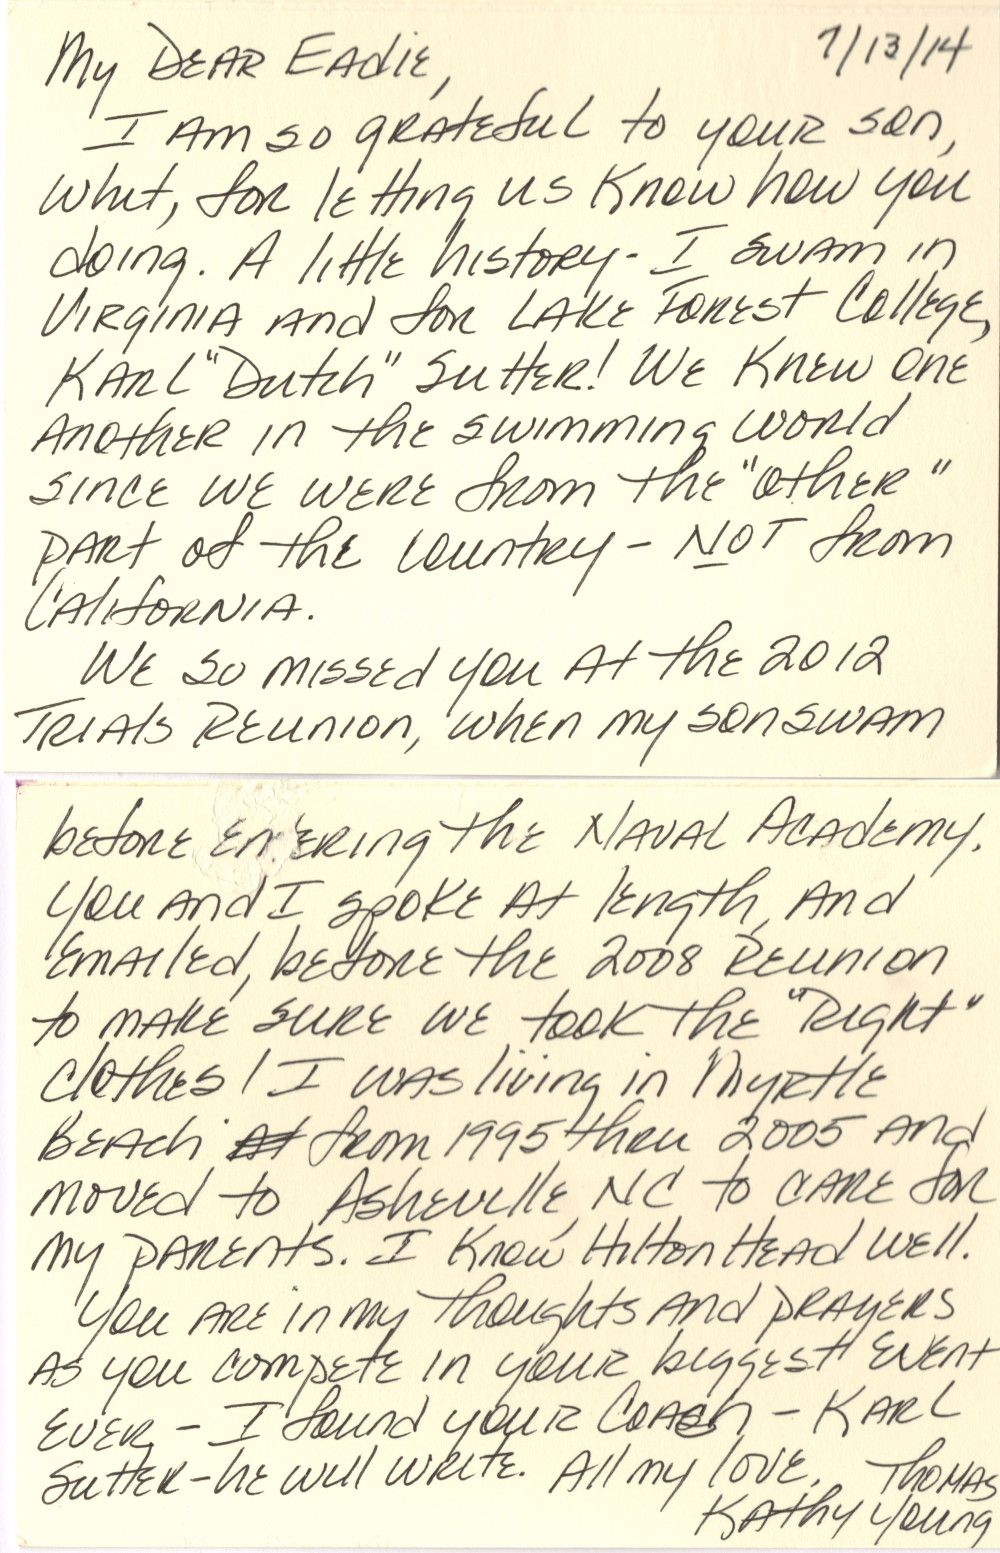 7/13/14
My Dear Eadie,
I am so grateful to your son,
Whit, for letting us know how you
doing. A little history - I swam in
Virginia and for Lake Forest College,
Karl "Dutch" Sutter! We knew one
another in the swimming world
since we were from the "other"
part of the country - NOT from
California.
We so missed you at the 2012
Trials Reunion, when my son swam
before entering the Naval Academy.
You and I spoke at length, and
emailed, before the 2008 Reunion
to make sure we took the "Right"
clothes! I was living in Myrtle
Beach at from 1995 thru 2005 and
moved to Asheville, NC to care for
my parents. I know Hilton Head well.
You are in my thoughts and prayers
as you compete in your biggest event
ever - I found your Coach - Karl
Sutter - he will write. All my love, Thomas
Kathy Young